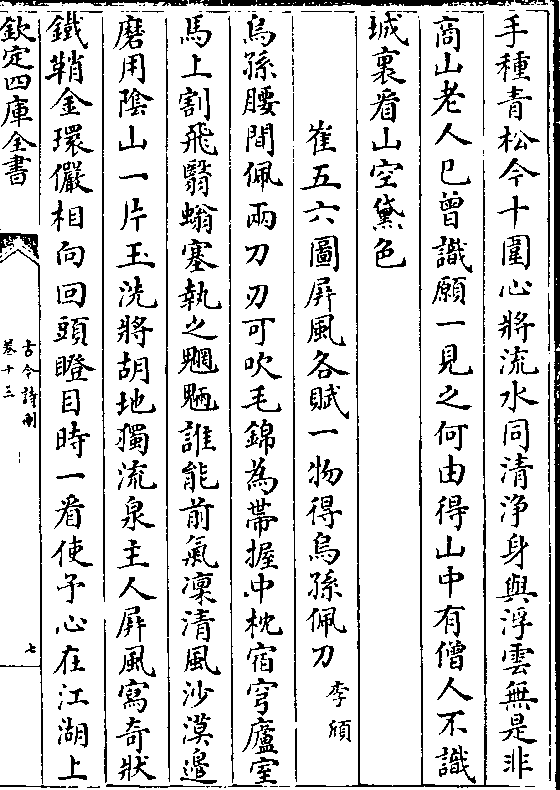 手種青松今十圍心將流水同清淨身與浮雲無是非
商山老人已曾識願一見之何由得山中有僧人不識
城裏看山空黛色
崔五六圖屛風各賦一物得烏孫佩刀 李頎
烏孫腰間佩兩刀刃可吹毛錦為帶握中枕宿穹廬室
馬上割飛翳螉塞執之魍魎誰能前氣凜清風沙漠邊
磨用陰山一片玉洗將胡地獨流泉主人屛風寫奇狀
鐵鞘金環儼相向回頭瞪目時一看使予心在江湖上
欽定四庫全書
古今詩刪
卷十三
七